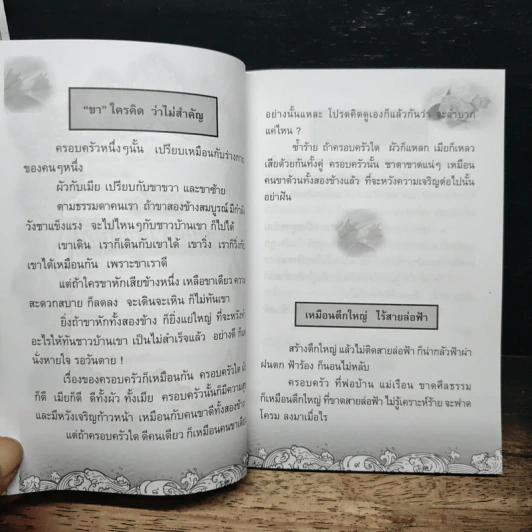 "ขา" ใครคิด ว่าไม่สำคัญ
ครอบครัวหนึ่งๆนั้น เปรียบเหมือนกับร่างกาย
ของคนๆหนึ่ง
ผัวกับเมีย เปรียบกับขาขวา และขาซ้าย
ตามธรรมดาคนเรา ถ้าขาสองข้างสมบูรณ์ มีกำลัง
วังชาแข็งแรง จะไปไหนๆกับชาวบ้านเขา ก็ไปได้
เขาเดิน เราก็เดินกับเขาได้ เขาวิ่ง เราก็วิ่งกับ
เขาได้เหมือนกัน เพราะขาเราดี
แต่ถ้าใครขาหักเสียข้างหนึ่ง เหลือขาเดียว ความ
สะดวกสบาย ก็ลดลง จะเดินจะเหิน ก็ไม่ทันเขา
ยิ่งถ้าขาหักทั้งสองข้าง ก็ยิ่งแย่ใหญ่ ที่จะหวังทำ
อะไรให้ทันชาวบ้านเขา เป็นไม่สำเร็จแล้ว อย่างดี ก็
นั่งหายใจ รอวันตาย !
เรื่องของครอบครัวก็เหมือนกัน ครอบครัวใด
ก็ดี เมียก็ดี ดีทั้งผัว ทั้งเมีย ครอบครัวนั้นก็มีความสุข
และมีหวังเจริญก้าวหน้า เหมือนกับคนขาดีทั้งสองข้าง
แต่ถ้าครอบครัวใด ดีคนเดียว ก็เหมือนคนขาเดียว
๘
อย่างนั้นแหละ โปรดคิดดูเองก็แล้วกันว่า จะลำบาก
แค่ไหน ?
ซ้ำร้าย ถ้าครอบครัวใด ผัวก็แหลก เมียก็เหลว
เสียด้วยกันทั้งคู่ ครอบครัวนั้น ชาตาขาดแน่ๆ เหมือน
คนขาด้วนทั้งสองข้างแล้ว ที่จะหวังความเจริญต่อไปนั้น
อย่าฝัน
เหมือนตึกใหญ่ ไร้สายล่อฟ้า
สร้างตึกใหญ่ แล้วไม่ติดสายล่อฟ้า ก็น่ากลัวฟ้าผ่า
ฝนตก ฟ้าร้อง ก็นอนไม่หลับ
ครอบครัว ที่พ่อบ้าน แม่เรือน ขาดศีลธรรม
ก็เหมือนตึกใหญ่ ที่ขาดสายล่อฟ้า ไม่รู้เคราะห์ร้าย จะฟาด
โครม ลงมาเมื่อไร
๙